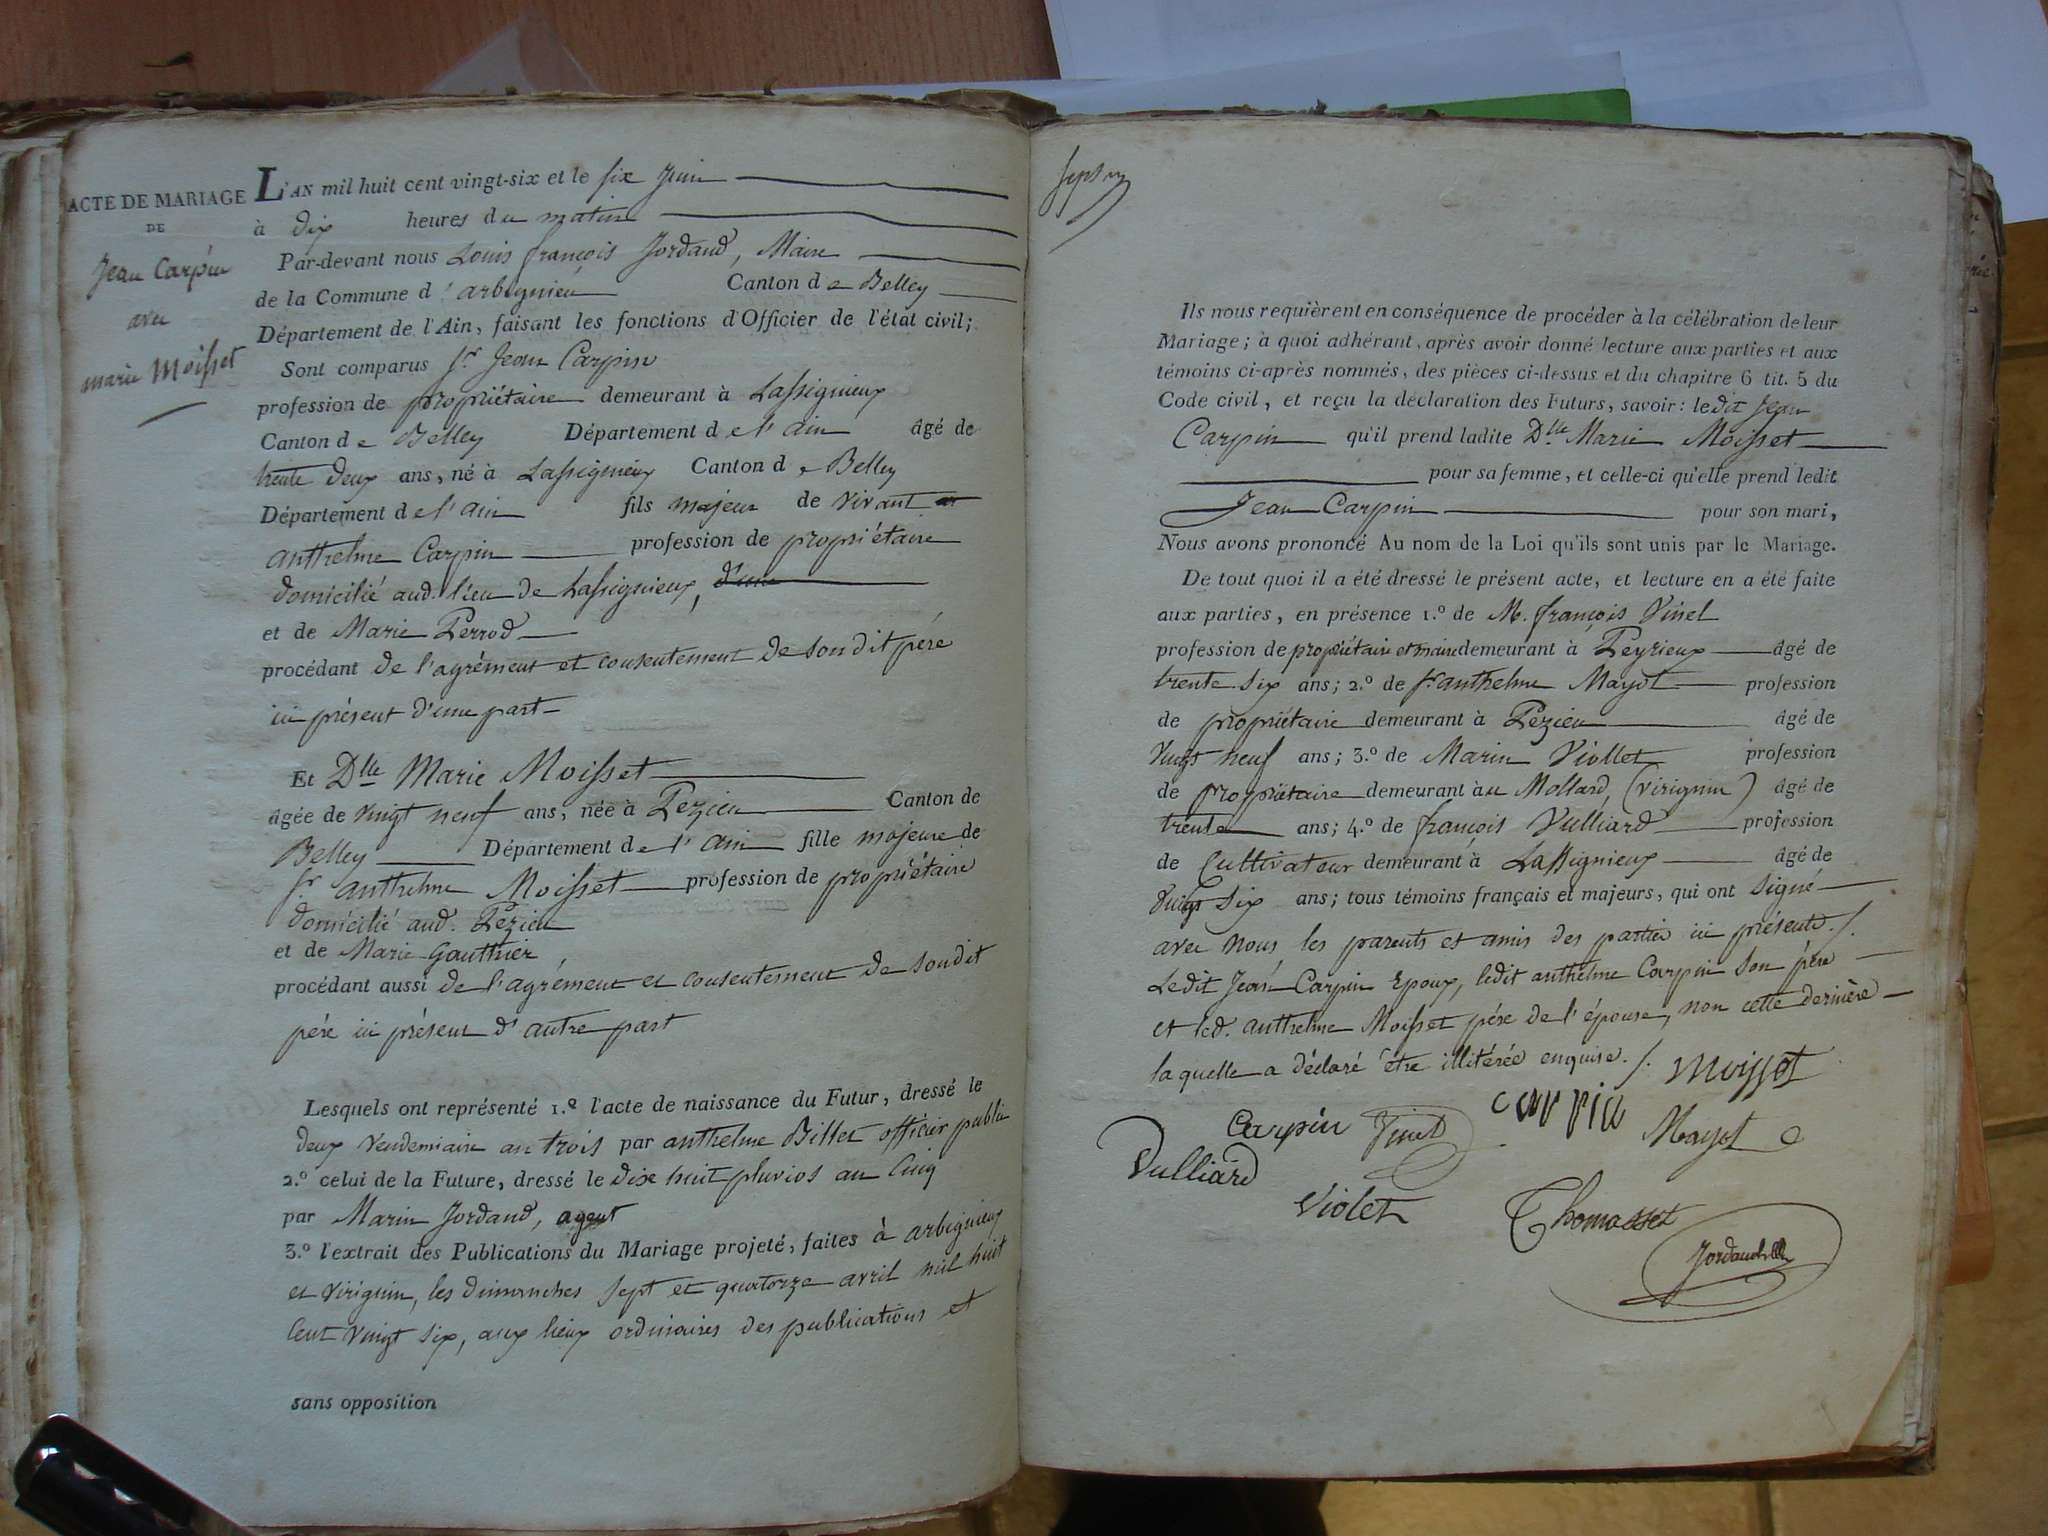 ACTE DE MARIAGE
DE
Jean Carpin
avec
marie Moisset
L'AN mil huit cent vingt-six et le six Juin
à dix heures du matin
Par-devant nous Louis françois Jordand, Maire
de la Commune d'arbignieu Canton de Belley
Département de l'Ain, faisant les fonctions d'Officier de l'état civil;
Sont comparus Sr. Jean Carpin
profession de propriétaire demeurant à Lassignieux
Canton de Belley Département de l'ain âgé de
trente deux ans, né à Lassignieux Canton de Belley
Département de l'ain fils majeur de vivant
anthelme Carpin profession de propriétaire
domicilié aud. lieu de Lassignieux,
et de Marie Perrod
procédant de l'agrément et consentement de son dit pére
ici présent d'une part
Et Dlle Marie Moisset
âgée de vingt neuf ans, née à Pezieu Canton de
Belley Département de l'ain fille majeure de
Sr anthelme Moisset profession de propriétaire
domicilié aud. Pezieu
et de Marie Gauthier,
procédant aussi de l'agrément et consentement de sondit
pére ici présent d'autre part
Lesquels ont représenté 1.º l'acte de naissance du Futur, dressé le
deux Vendemiaire an trois par anthelme Billet officier public
2.º celui de la Future, dressé le dix huit pluvios an Cinq
par Marin Jordand, agent
3.º l'extrait des Publications du Mariage projeté, faites à arbignieux
et virignin, les dimanches sept et quatorze avril mil huit
Cent vingt six, aux lieux ordinaires des publications et
sans opposition
Ils nous requièrent en conséquence de procéder à la célébration de leur
Mariage; à quoi adhérant, après avoir donné lecture aux parties et aux
témoins ci-après nommés, des pièces ci-dessus et du chapitre 6 tit. 5 du
Code civil, et reçu la déclaration des Futurs, savoir: ledit Jean
Carpin qu'il prend ladite Dlle Marie Moisset
pour sa femme, et celle-ci qu'elle prend ledit
Jean Carpin pour son mari,
Nous avons prononcé Au nom de la Loi qu'ils sont unis par le Mariage.
De tout quoi il a été dressé le présent acte, et lecture en a été faite
aux parties, en présence 1.º de M. françois Vinel
profession de propriétaire et maire demeurant à Peyrieux âgé de
trente six ans; 2.º de Sr anthelme Mayot profession
de propriétaire demeurant à Pezieu âgé de
vingt neuf ans; 3.º de Marin Viollet profession
de propriétaire demeurant au Mollard, (virignin) âgé de
trente ans; 4.º de françois Vulliard profession
de Cultivateur demeurant à Lassignieux âgé de
vingt six ans; tous témoins français et majeurs, qui ont signé
avec nous, les parents et amis des parties ici présents./.
Ledit Jean Carpin Epoux, ledit anthelme Carpin son pére
et led. anthelme Moisset pére de l'épouse, non cette dernière
laquelle a déclaré être illitérée enquise./. Moisset
Carpin Vinel carpin Mayot
Vulliard
Violet Thomasset